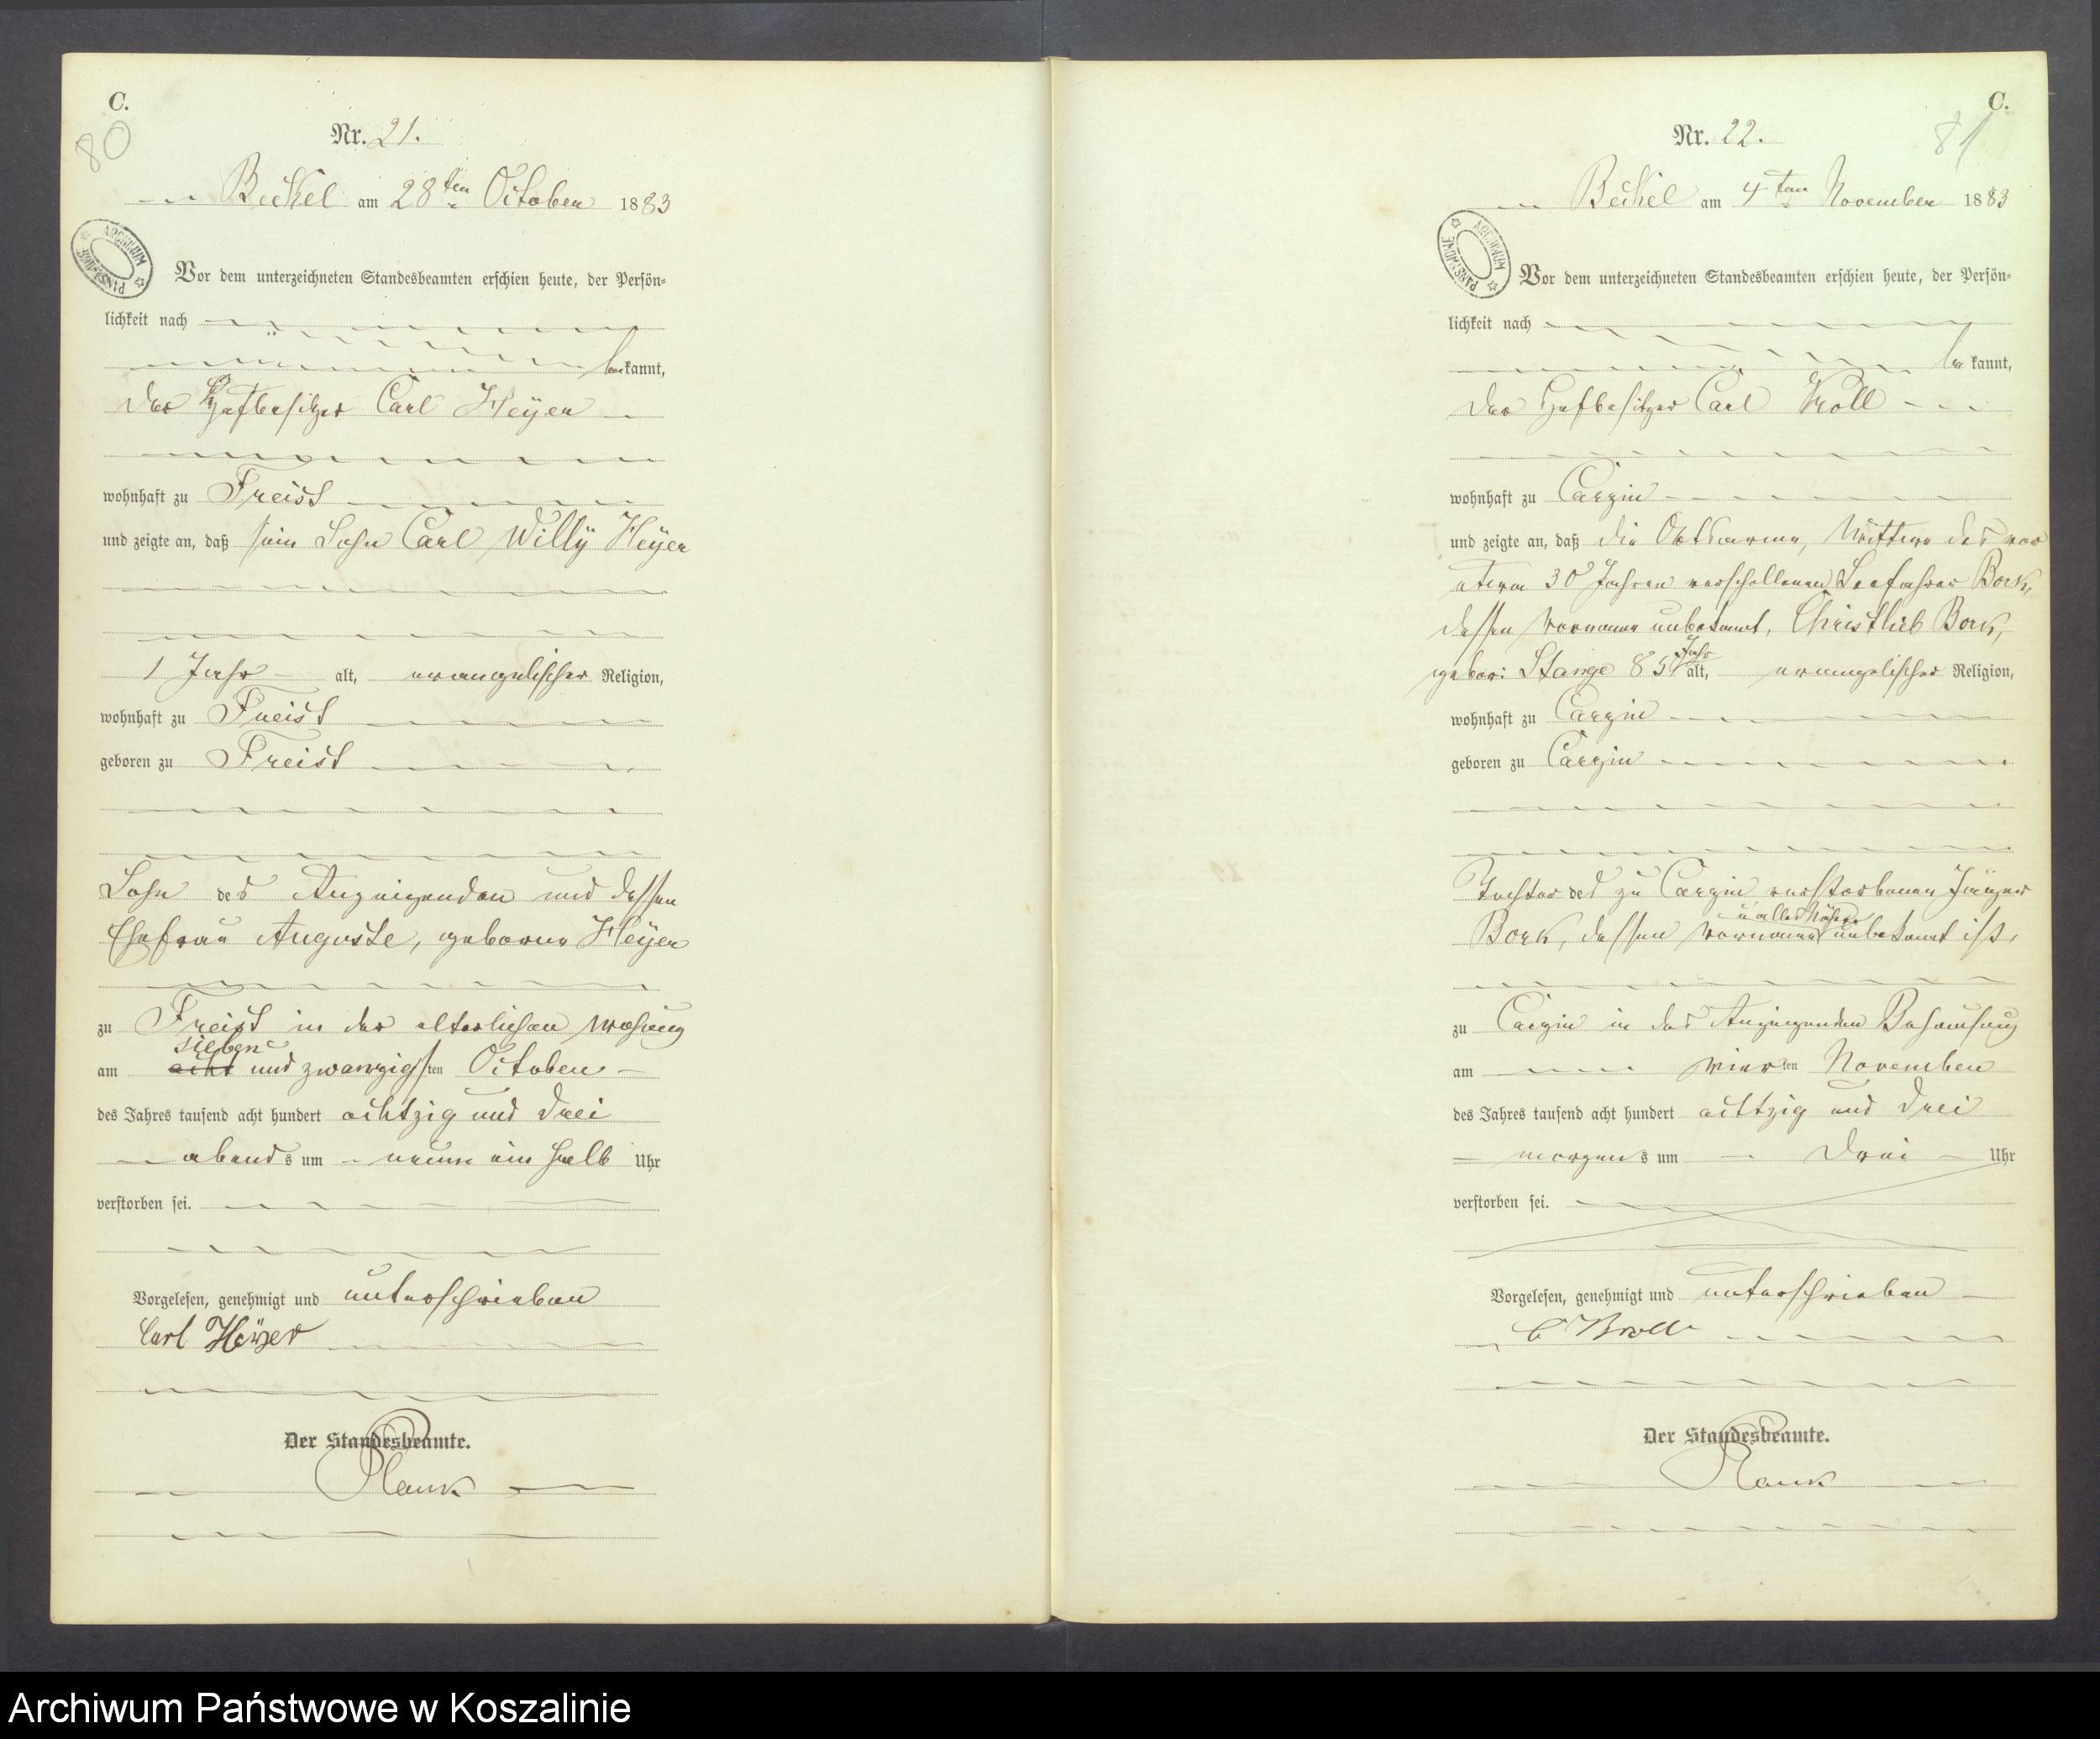 C.
80
Nr. 21.
Beckel am 28ten October 1883
ARCHIWUM PAŃSTWOWE
Vor dem unterzeichneten Standesbeamten erschien heute, der Persön-
lichkeit nach
bekannt,
der Hofbesitzer Carl Heyer
wohnhaft zu Freist
und zeigte an, daß sein Sohn Carl Willÿ Heÿer
1 Jahr alt, evangelischer Religion,
wohnhaft zu Freist
geboren zu Freist
Sohn des Anzeigenden und dessen
Ehefrau Auguste, geborne Heÿer
zu Freist in der elterlichen Wohnung
sieben
am acht und zwanzigsten October
des Jahres tausend acht hundert achtzig und drei
abends um neun ein halb Uhr
verstorben sei.
Vorgelesen, genehmigt und unterschrieben
Carl Heÿer
Der Standesbeamte.
C.
81
Nr. 22.
Beckel am 4ten November 1883
ARCHIWUM PAŃSTWOWE
Vor dem unterzeichneten Standesbeamten erschien heute, der Persön-
lichkeit nach
bekannt,
der Hofbesitzer Carl
wohnhaft zu Carzin
und zeigte an, daß die Ortsarme, Wittwe des vor
etwa 30 Jahren verschollenen Seefahrer Bork,
dessen Vorname unbekannt, Christlieb Bork,
gebor: Stange 85 Jahr alt, evangelischer Religion,
wohnhaft zu Carzin
geboren zu Carzin
Tochter des zu Carzin verstorbenen Jäger
u alles Nähere
Bork, dessen Vorname unbekannt ist,
zu Carzin in des Anzeigenden Behausung
am vierten November
des Jahres tausend acht hundert achtzig und drei
morgens um drei Uhr
verstorben sei.
Vorgelesen, genehmigt und unterschrieben
Der Standesbeamte.
Archiwum Państwowe w Koszalinie